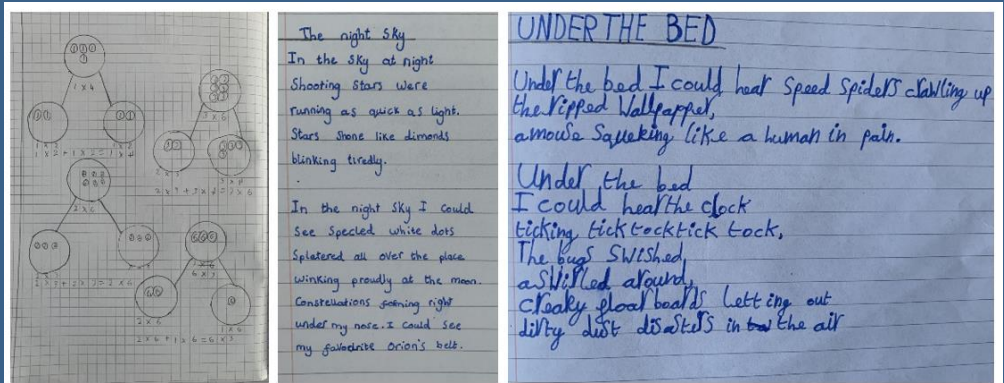 1 x 4
1 x 2 + 1 x 2 = 1 x 4
3 x 6
2 x 6
The night Sky
In the Sky at night
Shooting Stars were
running as quick as light.
Stars Shone like dimonds
blinking tiredly.
In the night Sky I could
See Specled white dots
Splatered all over the place
winking proudly at the moon.
Constellations forming right
under my nose. I could See
my favourite Orion's belt.
UNDER THE BED
Under the bed I could hear Speed Spiders crawling up
the ripped Wallpapper,
a mouse Squeking like a human in pain.
Under the bed
I could hear the clock
ticking tick tock tick tock,
The bugs Swished,
a Swirled around,
creaky floarboards letting out
dirty dust disasters in the air